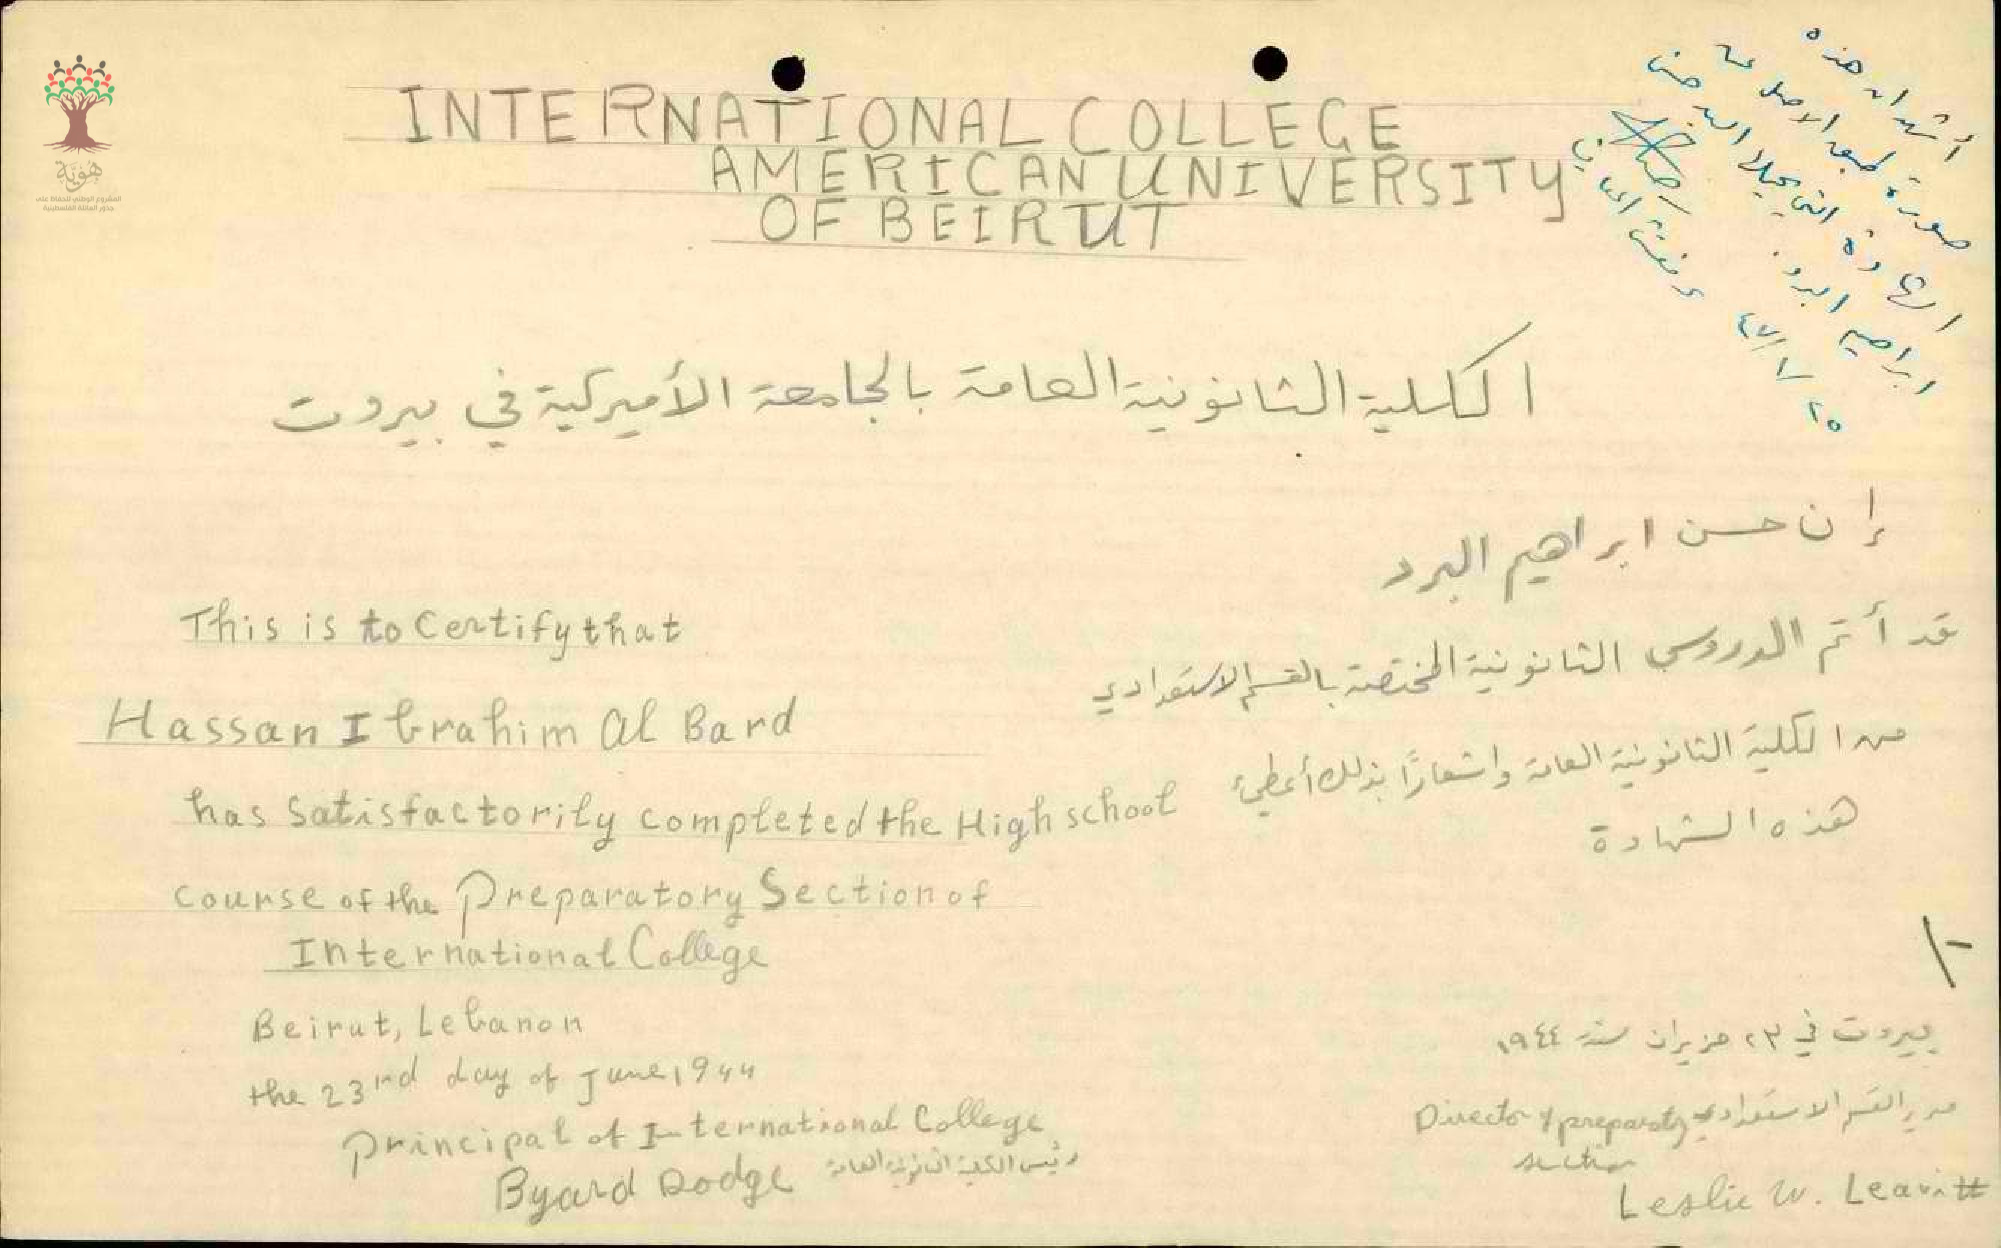 هوية
المشروع الوطني للحفاظ على
جذور العائلة الفلسطينية
INTERNATIONAL COLLEGE
AMERICAN UNIVERSITY
OF BEIRUT
أشهد ان هذه
صورة طبق الاصل عن
الشهادة التي يحملها السيد حسن
ابراهيم البرد
٢٥/١/٤٧
الكلية الثانونية العامة بالجامعة الأميركية في بيروت
إن حسن ابراهيم البرد
قد أتم الدروس الثانونية المختصة بالقسم الاستعدادي
من الكلية الثانونية العامة واشعارًا بذلك أعطيء
هذه الشهادة
This is to Certify that
Hassan Ibrahim Al Bard
has Satisfactorily completed the High school
course of the Preparatory Section of
International College
Beirut, Lebanon
the 23rd day of June, 1944
Principal of International College
رئيس الكلية الثانونية العامة
Byard Dodge
بيروت في ٢٣ حزيران سنة ١٩٤٤
مدير القسم الاستعدادي
Director of preparatory
section
Leslie W. Leavitt